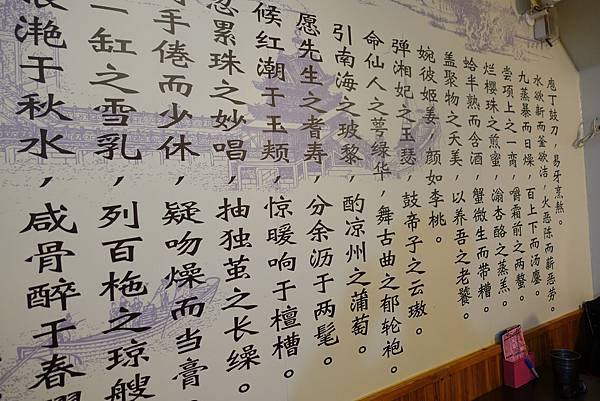 庖丁鼓刀，易牙烹熬。
水欲新而釜欲洁，火恶陈而薪恶劳。
九蒸暴而日燥，百上下而汤鏖。
尝项上之一脔，嚼霜前之两螯。
烂樱珠之煎蜜，滃杏酪之蒸羔。
蛤半熟而含酒，蟹微生而带糟。
盖聚物之夭美，以养吾之老饕。
婉彼姬姜，颜如李桃。
弹湘妃之玉瑟，鼓帝子之云璈。
命仙人之萼绿华，舞古曲之郁轮袍。
引南海之玻黎，酌凉州之蒲萄。
愿先生之耆寿，分余沥于两髦。
候红潮于玉颊，惊暖响于檀槽。
忽累珠之妙唱，抽独茧之长缲。
手倦而少休，疑吻燥而当膏。
一缸之雪乳，列百柂之琼艘
滟于秋水，咸骨醉于春